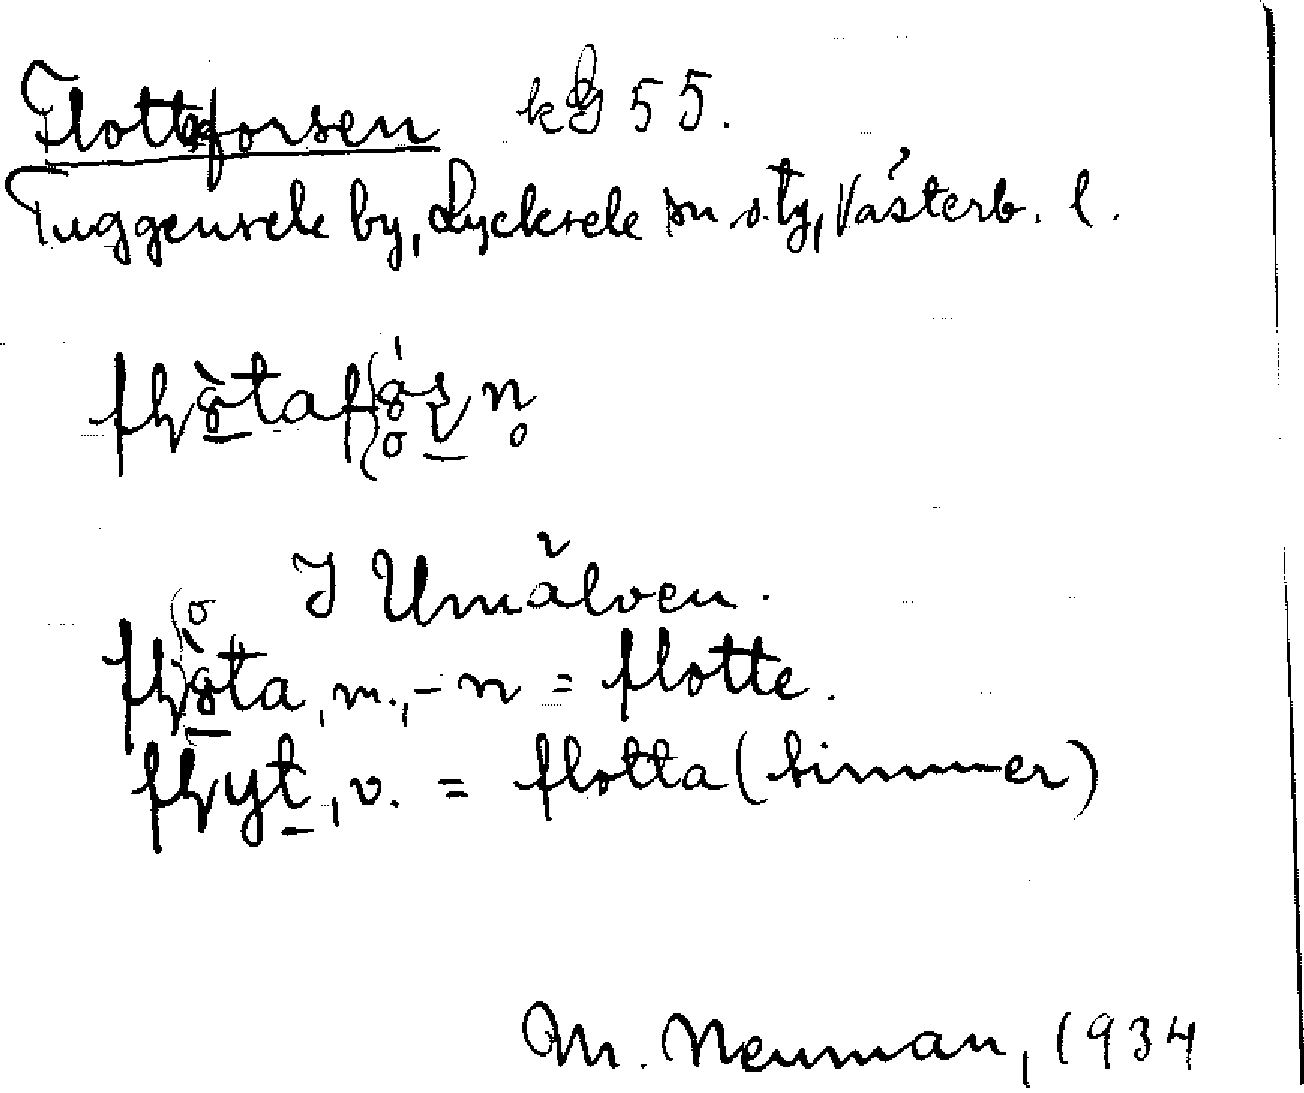 Flottforsen kg 55.
Tuggensele by, Lycksele sn o. tg, Västerb. l.
I Umälven.
, m., -n = flotte.
flyt, v. = flotta (timmer)
M. Neuman, 1934